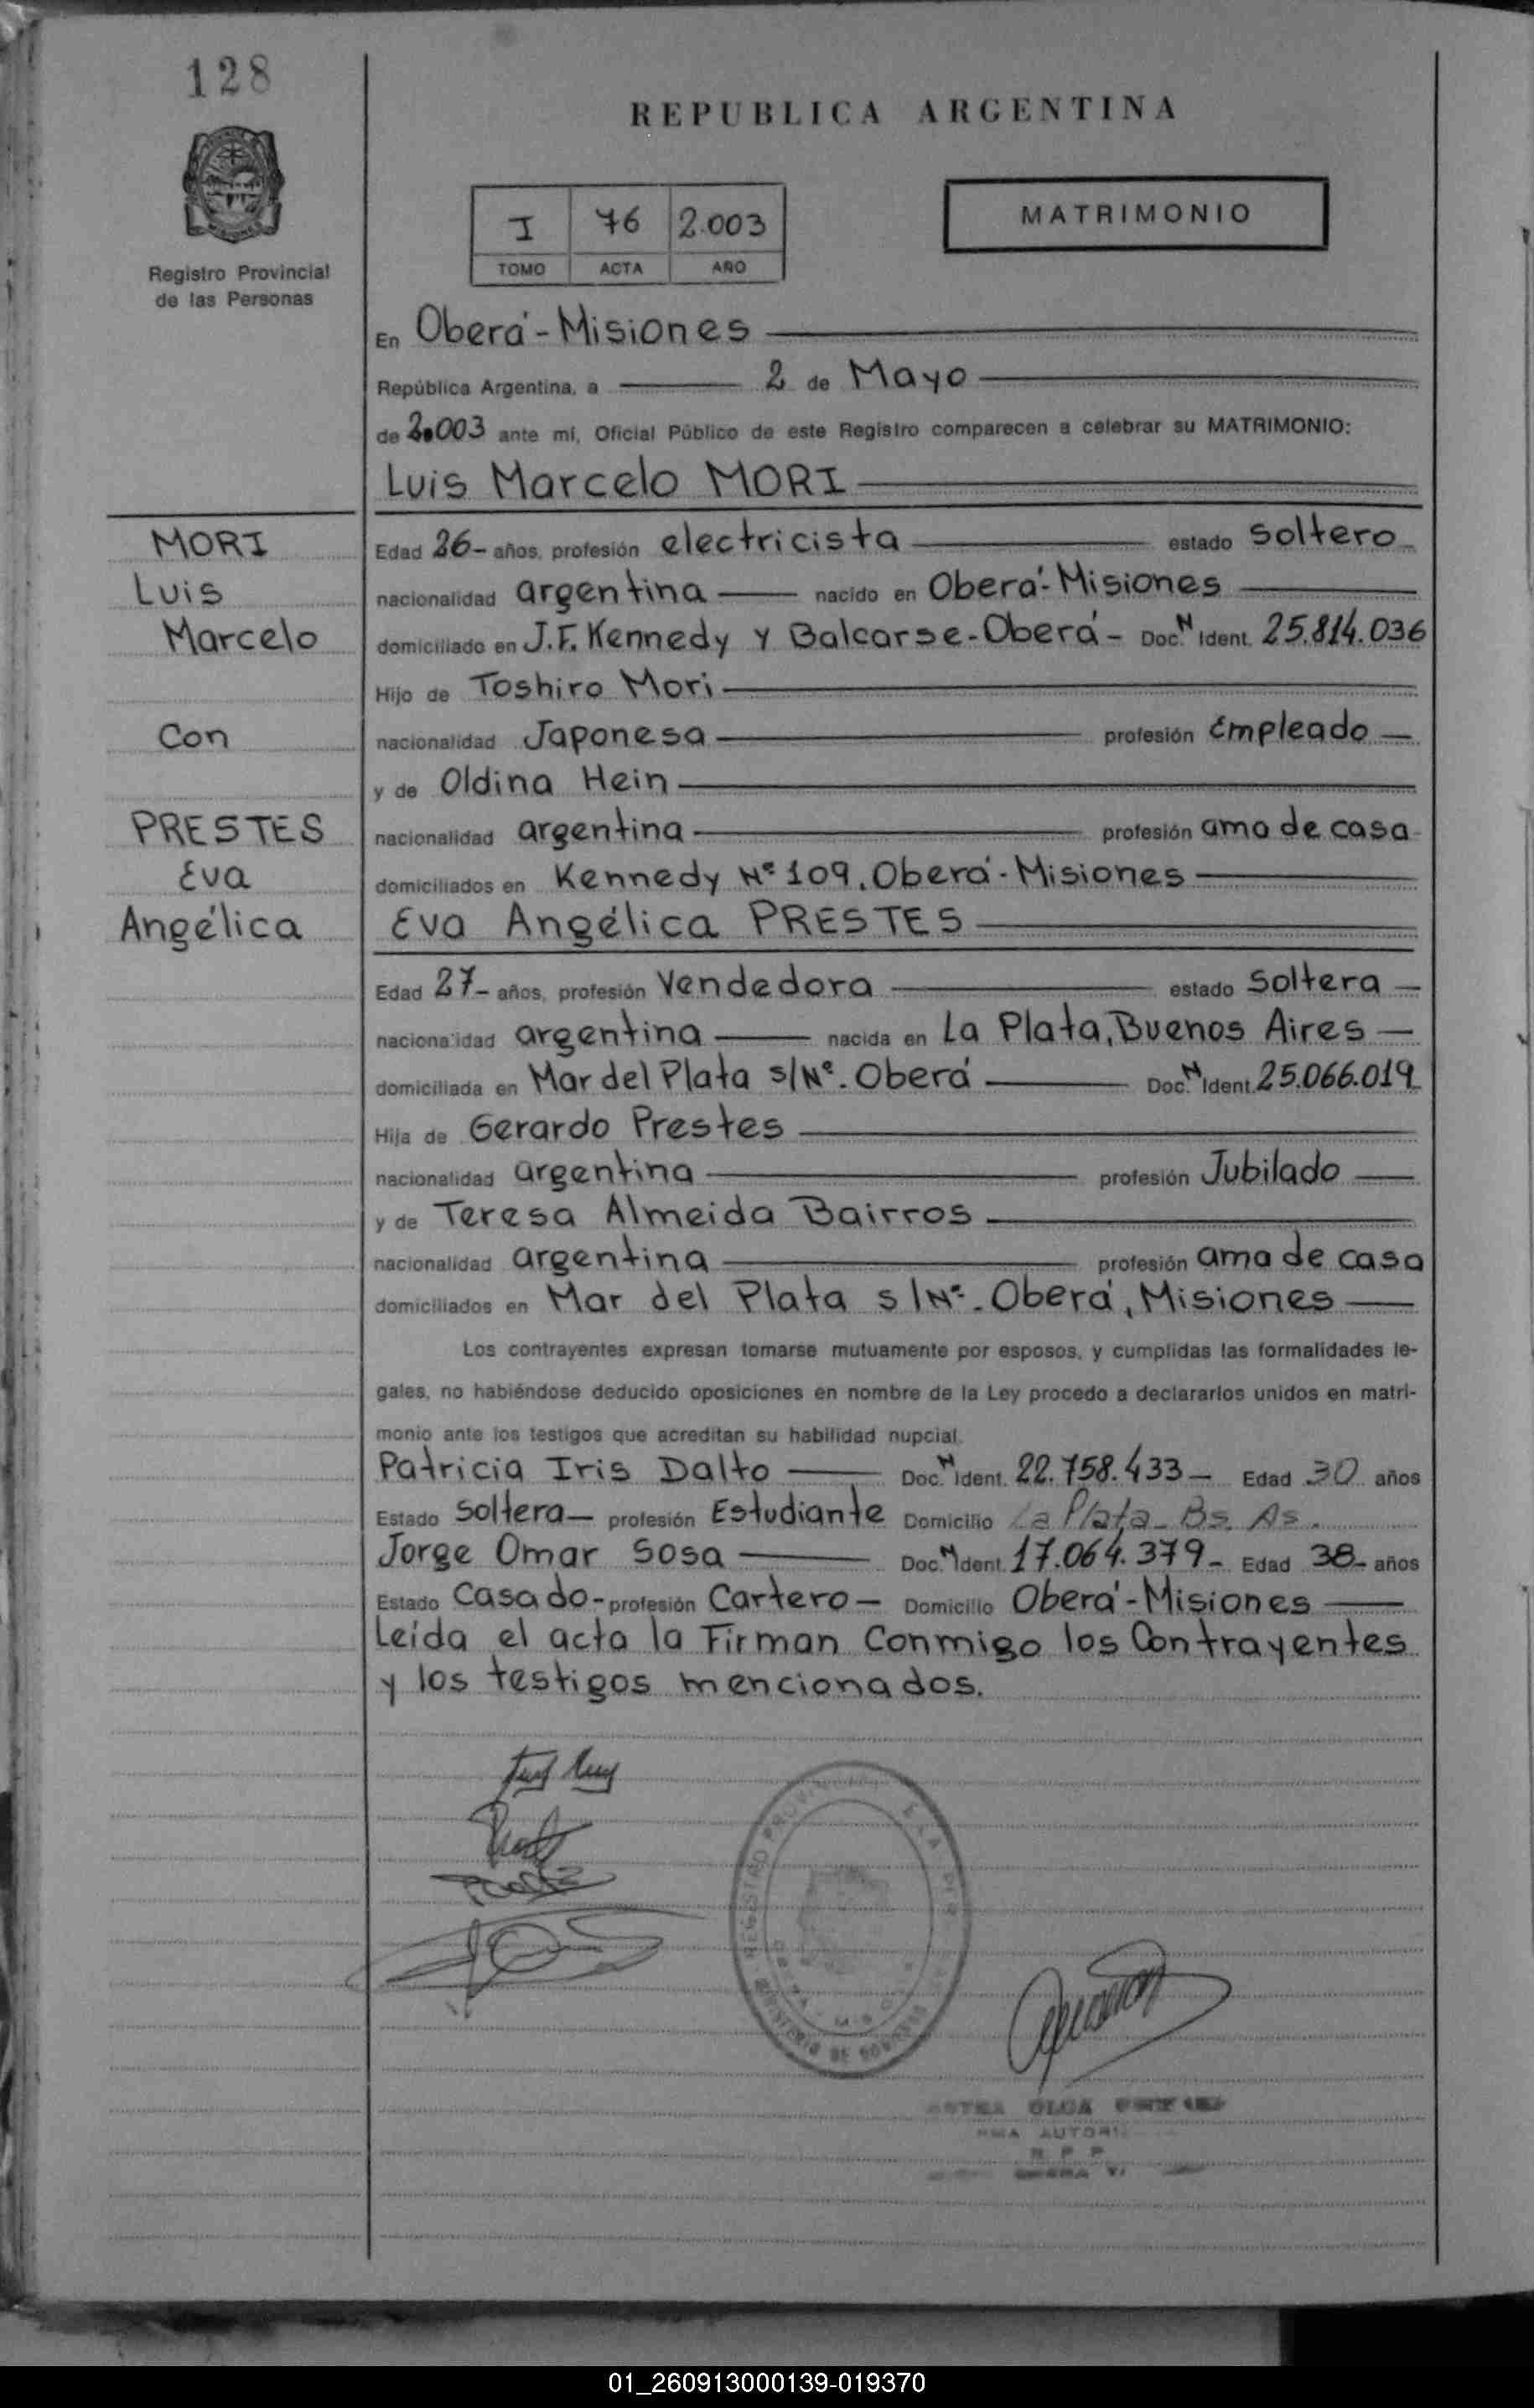 128
REPUBLICA ARGENTINA
I 76 2.003
TOMO ACTA AÑO
MATRIMONIO
Registro Provincial
de las Personas
En Oberá-Misiones
República Argentina, a 2 de Mayo
de 2.003 ante mí, Oficial Público de este Registro comparecen a celebrar su MATRIMONIO:
Luis Marcelo MORI
MORI
Luis
Marcelo
Con
PRESTES
Eva
Angélica
Edad 26- años, profesión electricista estado Soltero
nacionalidad argentina nacido en Oberá-Misiones
domiciliado en J.F. Kennedy y Balcarse-Oberá- Doc. N Ident. 25.814.036
Hijo de Toshiro Mori
nacionalidad Japonesa profesión Empleado
y de Oldina Hein
nacionalidad argentina profesión ama de casa
domiciliados en Kennedy Nº 109, Oberá-Misiones
Eva Angélica PRESTES
Edad 27- años, profesión Vendedora estado Soltera
nacionalidad argentina nacida en La Plata, Buenos Aires
domiciliada en Mar del Plata s/Nº. Oberá Doc. N Ident. 25.066.019
Hija de Gerardo Prestes
nacionalidad argentina profesión Jubilado
y de Teresa Almeida Bairros
nacionalidad argentina profesión ama de casa
domiciliados en Mar del Plata s/Nº. Oberá, Misiones
Los contrayentes expresan tomarse mutuamente por esposos, y cumplidas las formalidades le-
gales, no habiéndose deducido oposiciones en nombre de la Ley procedo a declararlos unidos en matri-
monio ante los testigos que acreditan su habilidad nupcial.
Patricia Iris Dalto Doc. N Ident. 22.758.433- Edad 30 años
Estado Soltera- profesión Estudiante Domicilio La Plata- Bs. As.
Jorge Omar Sosa Doc. N Ident. 17.064.379- Edad 38- años
Estado Casado- profesión Cartero- Domicilio Oberá-Misiones
Leída el acta la Firman Conmigo los Contrayentes
y los testigos mencionados.
REGISTRO
MINISTERIO DE
OLGA
R P P
01_260913000139-019370